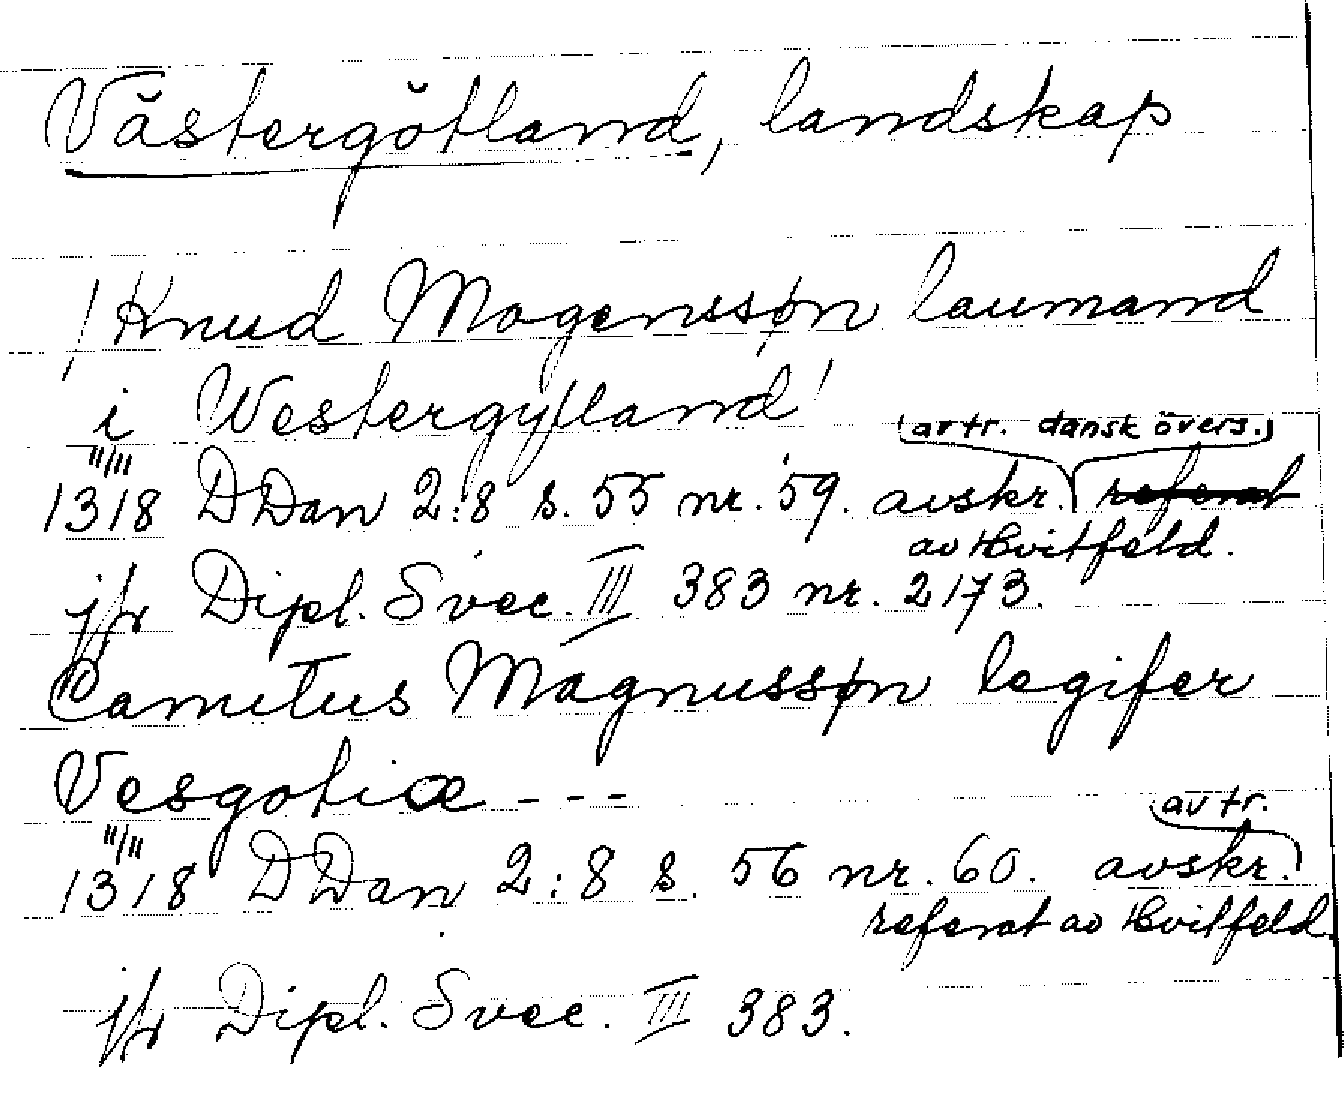 Västergötland, landskap
/ Knud Mogenssøn laumand
i Westergylland /
11/11 (av tr. dansk övers.)
1318 DDan 2:8 s. 55 nr. 59. avskr. referat
av Hvitfeld.
jfr Dipl. Svec. III 383 nr. 2173.
Canutus Magnussøn legifer
Vesgotiæ - - -
11/11 (av tr.
1318 DDan 2:8 s. 56 nr. 60. avskr.)
referat av Hvitfeld.
jfr Dipl. Svec. III 383.